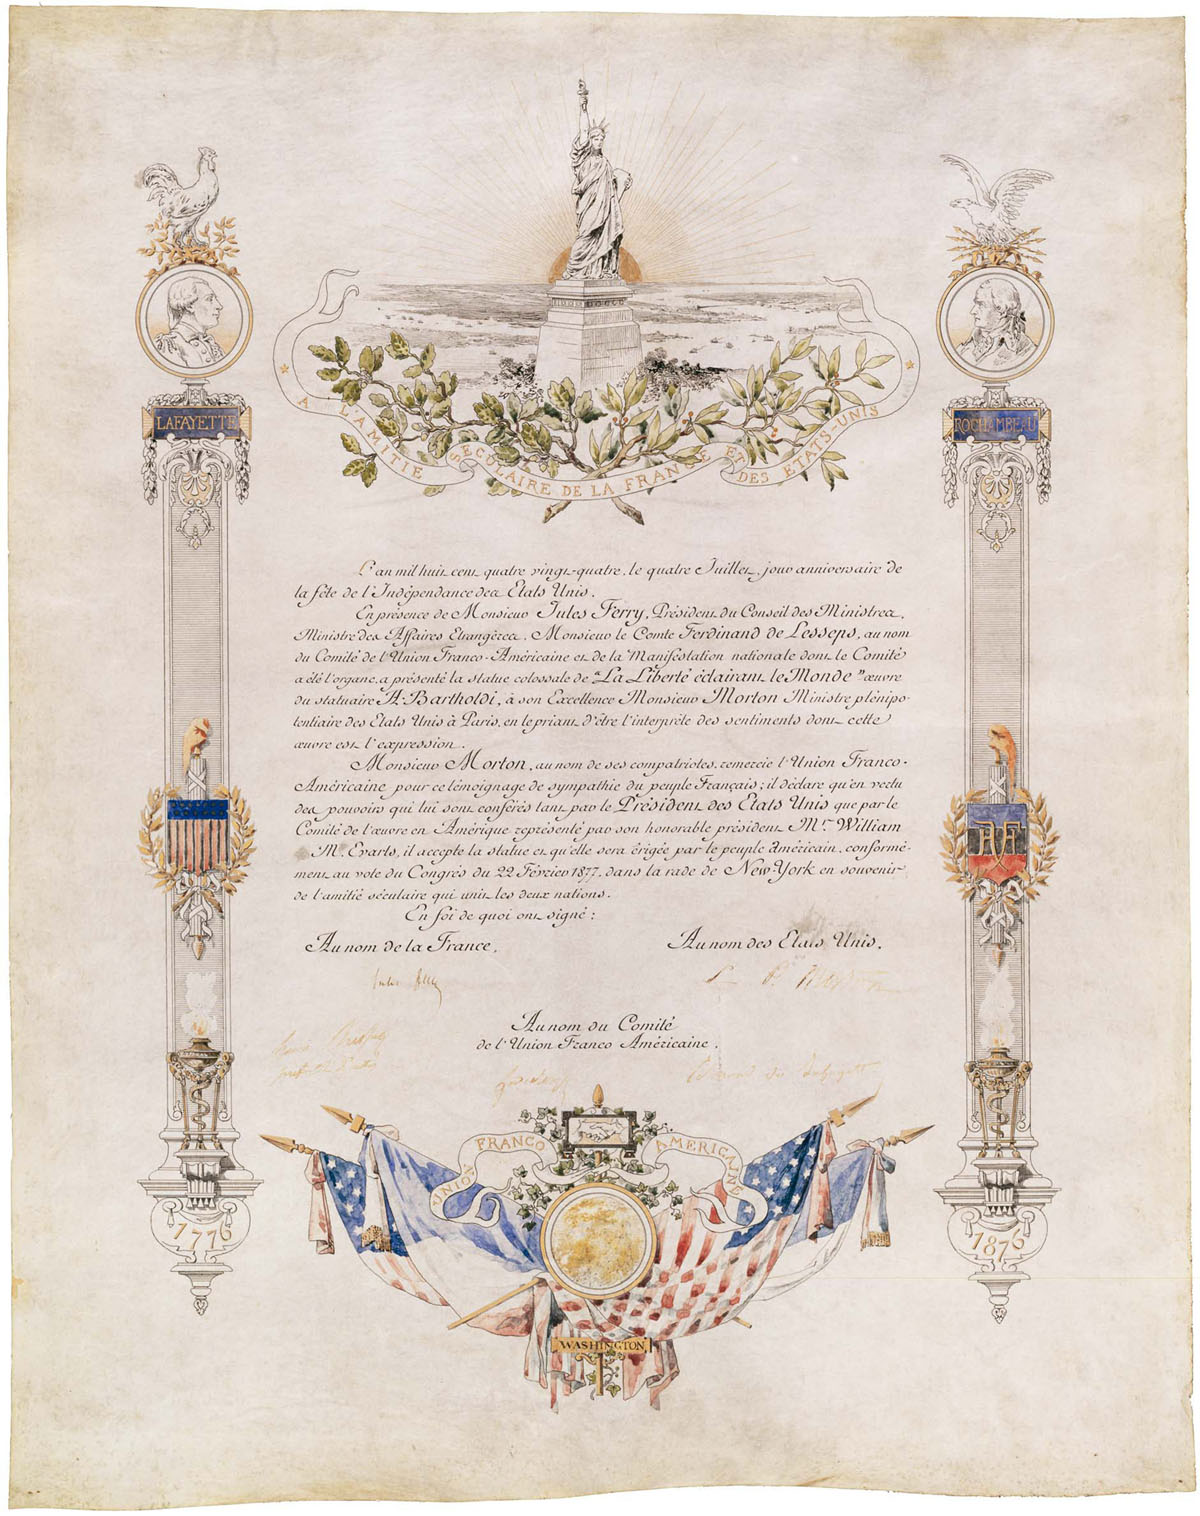 A L'AMITIE SECULAIRE DE LA FRANCE ET DES ETATS-UNIS
LAFAYETTE
ROCHAMBEAU
L'an mil huit cent quatre vingt-quatre, le quatre Juillet, jour anniversaire de
la fête de l'Indépendance des Etats Unis.
En présence de Monsieur Jules Ferry, Président du Conseil des Ministres,
Ministre des Affaires Etrangères, Monsieur le Comte Ferdinand de Lesseps, au nom
du Comité de l'Union Franco-Américaine et de la Manifestation nationale dont le Comité
a été l'organe, a présenté la statue colossale de "La Liberté éclairant le Monde" œuvre
du statuaire A. Bartholdi, à son Excellence Monsieur Morton Ministre plénipo-
tentiaire des Etats Unis à Paris, en le priant d'être l'interprète des sentiments dont cette
œuvre est l'expression.
Monsieur Morton, au nom de ses compatriotes, remercie l'Union Franco-
Américaine pour ce témoignage de sympathie du peuple Français; il déclare qu'en vertu
des pouvoirs qui lui sont conférés tant par le Président des Etats Unis que par le
Comité de l'œuvre en Amérique représenté par son honorable président Mr William
M. Evarts, il accepte la statue et qu'elle sera érigée par le peuple américain, conformé-
ment au vote du Congrès du 22 Février 1877, dans la rade de New-York en souvenir
de l'amitié séculaire qui unit les deux nations.
En foi de quoi ont signé:
Au nom de la France,
Au nom des Etats Unis.
Jules Ferry
L. P. Morton
Au nom du Comité
de l'Union Franco Américaine.
RF
UNION FRANCO AMERICAINE
1776
1876
WASHINGTON